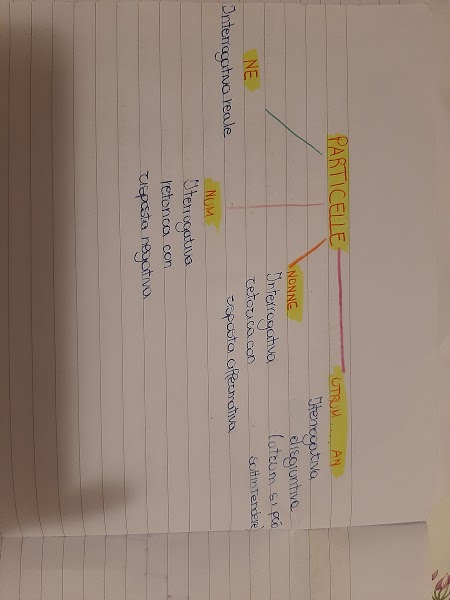 PARTICELLE
NE
Interrogativa reale
NUM
Iterrogativa
retorica con
risposta negativa
NONNE
Interrogativa
retorica con
risposta affermativa
UTRUM ..... AN
Iterrogativa
disgiuntiva
(utrum si può
sottintendere)